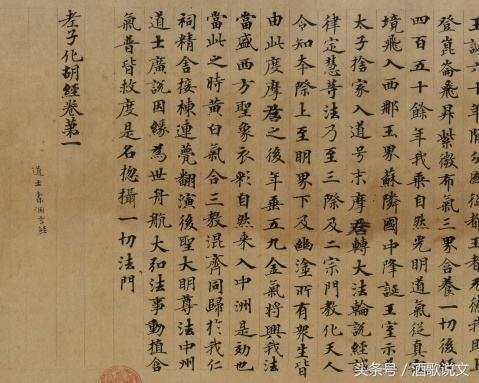 登崑崙飛昇紫微布氣三界含養一切後
四百五十餘年我乘自然光明道氣從真
境飛入西那王界蘇隣國中降誕王室示
太子捨家入道号末摩君轉大法輪說經誡
律定慧等法乃至三際及二宗門教化天人
令知本際上至明界下及幽塗所有衆生皆
由此度摩君之後年垂五九金氣將興我法
當盛西方聖象衣彩自然來入中洲是効也
當此之時黄白氣合三教混齊同歸於我仁
祠精舍接棟連甍翻演後聖大明尊法中州
道士廣說因緣為世舟航大弘法事動植含
氣普皆救度是名惣攝一切法門
老子化胡經卷第一
道士索洞玄經
头条号 / 酒歌说文